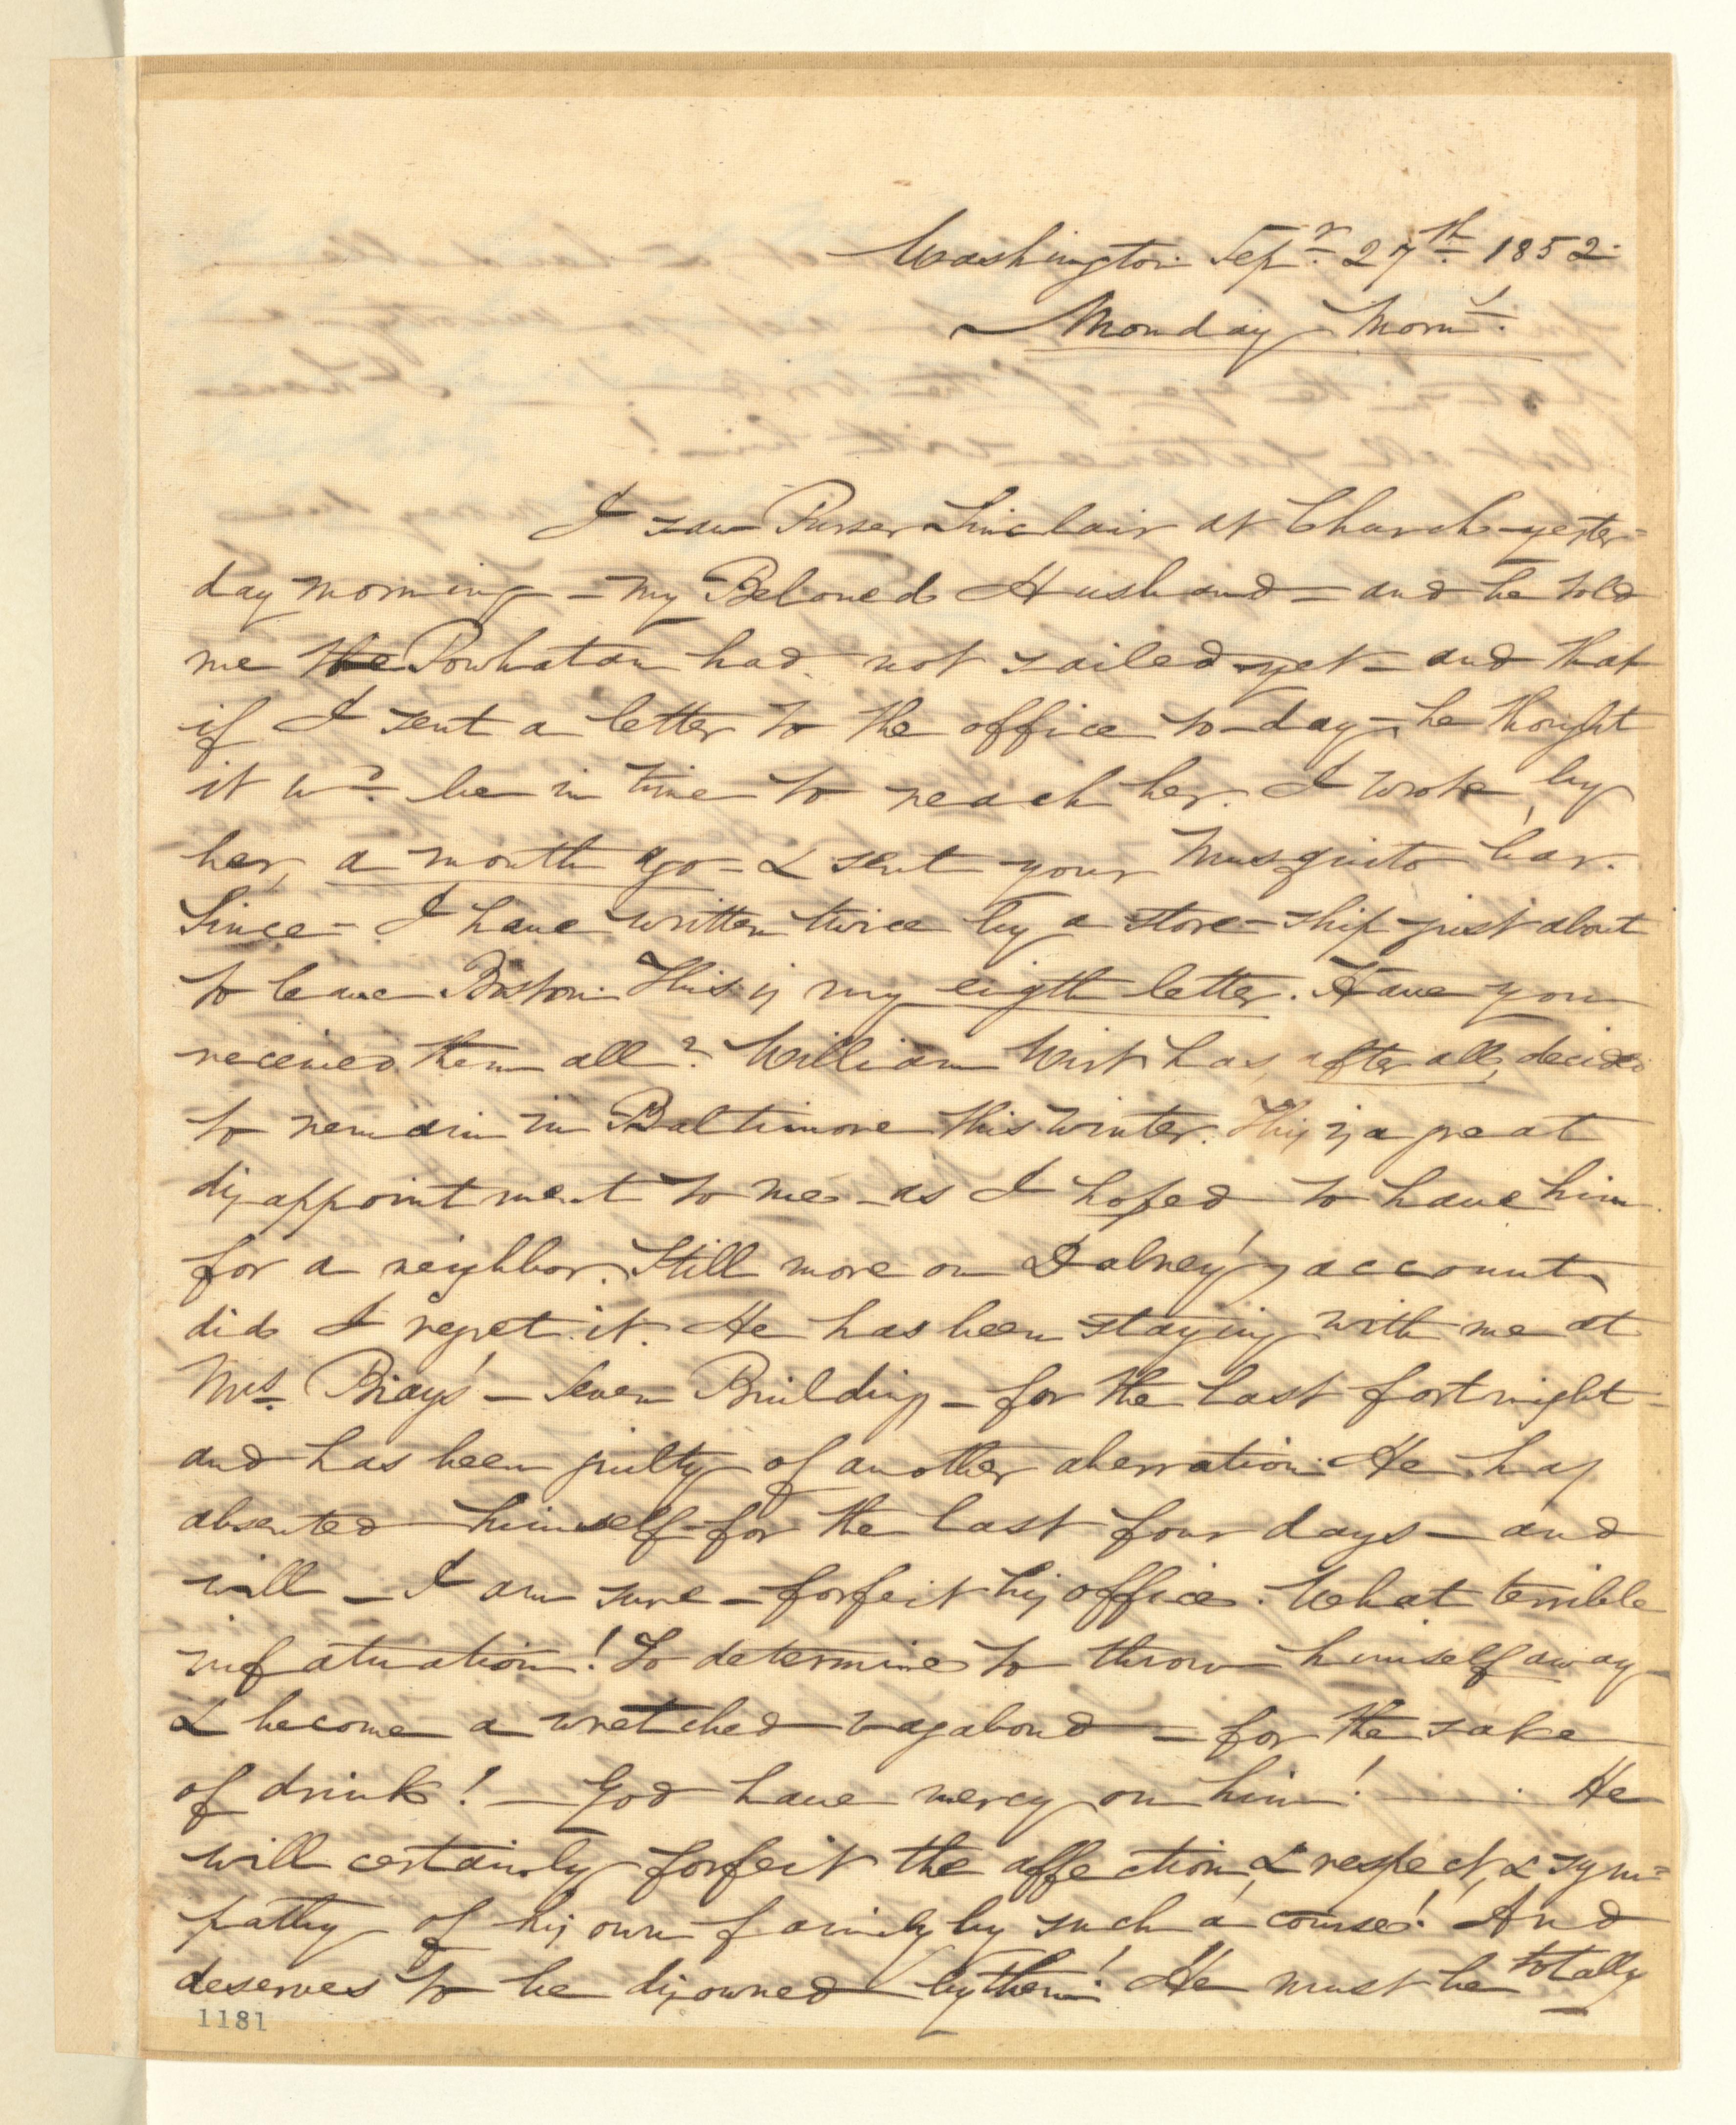 Washington Sepr. 27th. 1852.
Monday Morng.
I saw Purser Sinclair at Church yester=
day morning - my Beloved Husband - and he told
me the Powhatan had not sailed yet - and that
if I sent a letter to the office to-day, he thought
it wd. be in time to reach her. I wrote by
her, a month ago - & sent your Musquito bar.
Since - I have written twice by a store-ship just about
to leave Boston. This is my eigth letter. Have you
received them all? William Wirt has, after all, decided
to remain in Baltimore this winter. This is a great
disappointment to me - as I hoped to have him
for a neighbor. Still more on Dabney's account
did I regret it. He has been staying with me at
Mrs. Bray's - Seven Buildings - for the last fortnight -
and has been guilty of another aberration. He has
absented himself for the last four days - and
will - I am sure - forfeit his office. What terrible
infatuation! To determine to throw himself away
& become a wretched vagabond - for the sake
of drink! - God have mercy on him! - He
will certainly forfeit the affection, & respect, & sym=
pathy of his own family by such a course! And
deserves to be disowned by them! He must be totally
1181